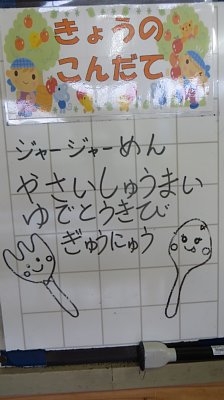 きょうの
こんだて
ジャージャーめん
やさいしゅうまい
ゆでとうきび
ぎゅうにゅう